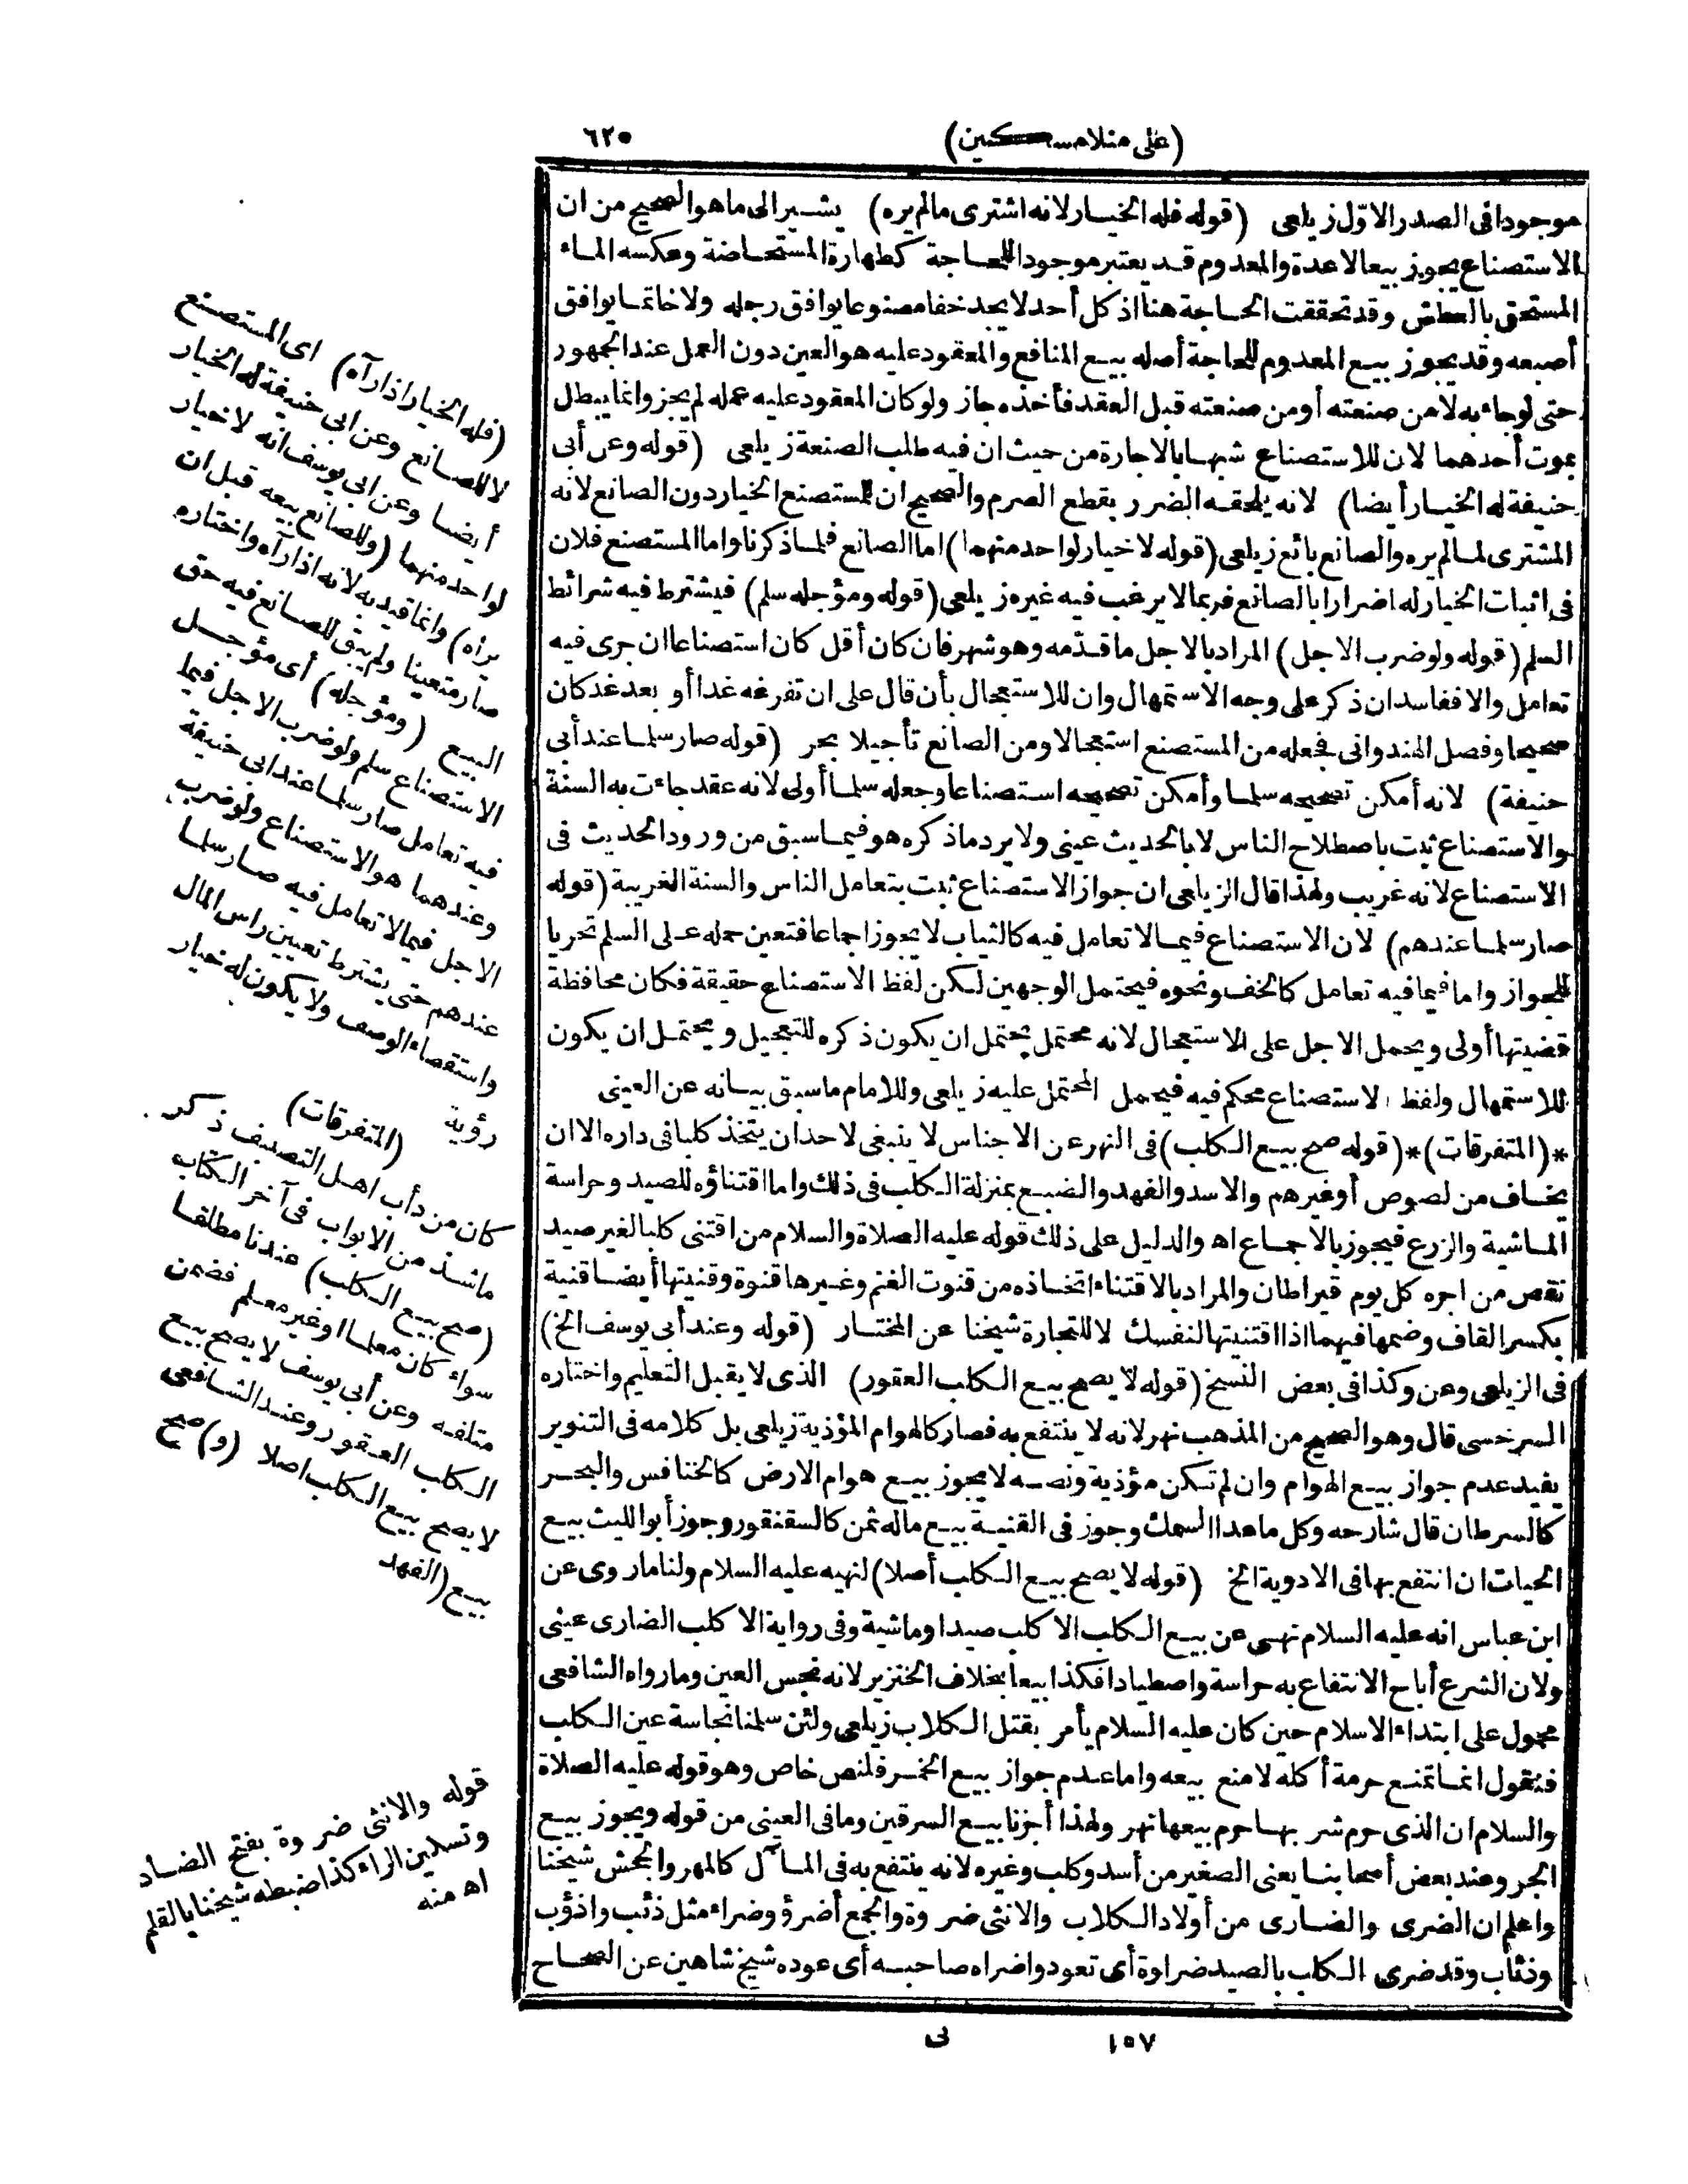 (على منلا مسكين) ٦٢٥
موجودا فى الصدر الاوّل زيلعى (قوله فله الخيار لانه اشترى مالم يره) يشير الى ما هو الصحيح من ان
الاستصناع يجوز بيعا لاعدة والمعدوم قد يعتبر موجودا للحاجة كطهارة المستحاضة وعكسه الماء
المستحق بالعطش وقد تحققت الحاجة هنا اذ كل أحد لا يجد خفا مصنوعا يوافق رجله ولا خاتما يوافق
أصبعه وقد يجوز بيع المعدوم للحاجة أصله بيع المنافع والمعقود عليه هو العين دون العمل عند الجمهور
حتى لو جاء به لا من صنعته أو من صنعته قبل العقد فأخذه جاز ولو كان المعقود عليه عمله لم يجز وانما يبطل
بموت أحدهما لان للاستصناع شبها بالاجارة من حيث ان فيه طلب الصنعة زيلعى (قوله وعن أبى
حنيفة له الخيار أيضا) لانه يلحقه الضرر بقطع الصرم والصحيح ان للمستصنع الخيار دون الصانع لانه
المشترى لما لم يره والصانع بائع زيلعى (قوله لا خيار لواحد منهما) اما الصانع فلما ذكرنا واما المستصنع فلان
فى اثبات الخيار له اضرارا بالصانع فربما لا يرغب فيه غيره زيلعى (قوله ومؤجله سلم) فيشترط فيه شرائط
السلم (قوله ولو ضرب الاجل) المراد بالاجل ما قدّمه وهو شهر فان كان أقل كان استصناعا ان جرى فيه
تعامل والا ففاسد ان ذكر على وجه الاستمهال وان للاستعجال بأن قال على ان تفرغه غدا أو بعد غد كان
صحيحا وفصل الهندوانى فجعله من المستصنع استعجالا ومن الصانع تأجيلا بحر (قوله صار سلما عند أبى
حنيفة) لانه أمكن تصحيحه سلما وأمكن تصحيحه استصناعا وجعله سلما أولى لانه عقد جاءت به السنة
والاستصناع ثبت باصطلاح الناس لا بالحديث عينى ولا يرد ما ذكره هو فيما سبق من ورود الحديث فى
الاستصناع لانه غريب ولهذا قال الزيلعى ان جواز الاستصناع ثبت بتعامل الناس والسنة الغريبة (قوله
صار سلما عندهم) لان الاستصناع فيما لا تعامل فيه كالثياب لا يجوز اجماعا فتعين حمله على السلم تحريا
للجواز واما فيما فيه تعامل كالخف ونحوه فيحتمل الوجهين لكن لفظ الاستصناع حقيقة فكان محافظة
قضيتها أولى ويحمل الاجل على الاستعجال لانه محتمل يحتمل ان يكون ذكره للتعجيل ويحتمل ان يكون
للاستمهال ولفظ الاستصناع محكم فيه فيحمل المحتمل عليه زيلعى وللامام ما سبق بيانه عن العينى
*(المتفرقات)* (قوله صح بيع الكلب) فى النهر عن الاجناس لا ينبغى لاحد ان يتخذ كلبا فى داره الا ان
يخاف من لصوص أو غيرهم والاسد والفهد والضبع بمنزلة الكلب فى ذلك واما اقتناؤه للصيد وحراسة
الماشية والزرع فيجوز بالاجماع اه والدليل على ذلك قوله عليه الصلاة والسلام من اقتنى كلبا لغير صيد
نقص من اجره كل يوم قيراطان والمراد بالاقتناء اتخاذه من قنوت الغنم وغيرها قنوة وقنيتها أيضا قنية
بكسر القاف وضمها فيهما اذا اقتنيتها لنفسك لا للتجارة شيخنا عن المختار (قوله وعند أبى يوسف الخ)
فى الزيلعى وعن وكذا فى بعض النسخ (قوله لا يصح بيع الكلب العقور) الذى لا يقبل التعليم واختاره
السرخسى قال وهو الصحيح من المذهب نهر لانه لا ينتفع به فصار كالهوام المؤذية زيلعى بل كلامه فى التنوير
يفيد عدم جواز بيع الهوام وان لم تكن مؤذية ونصه لا يجوز بيع هوام الارض كالخنافس والبحر
كالسرطان قال شارحه وكل ما عدا السمك وجوز فى القنية بيع ما له ثمن كالسقنقور وجوز أبو الليث بيع
الحيات ان انتفع بها فى الادوية الخ (قوله لا يصح بيع الكلب أصلا) لنهيه عليه السلام ولنا ما روى عن
ابن عباس انه عليه السلام نهى عن بيع الكلب الا كلب صيد او ماشية وفى رواية الا كلب الضارى عينى
ولان الشرع أباح الانتفاع به حراسة واصطيادا فكذا بيعا بخلاف الخنزير لانه نجس العين وما رواه الشافعى
محمول على ابتداء الاسلام حين كان عليه السلام يأمر بقتل الكلاب زيلعى ولئن سلمنا نجاسة عين الكلب
فنقول انما تمنع حرمة أكله لا منع بيعه واما عدم جواز بيع الخمر فلنص خاص وهو قوله عليه الصلاة
والسلام ان الذى حرم شربها حرم بيعها نهر ولهذا أجزنا بيع السرقين وما فى العينى من قوله ويجوز بيع
الجر وعند بعض أصحابنا يعنى الصغير من أسد وكلب وغيره لانه ينتفع به فى المآل كالمهر والجحش شيخنا
واعلم ان الضرى والضارى من أولاد الكلاب والانثى ضروة والجمع أضرؤ وضراء مثل ذئب واذؤب
وذئاب وقد ضرى الكلب بالصيد ضراوة أى تعود واضراه صاحبه أى عوده شيخ شاهين عن الصحاح
(فله الخيار اذا رآه) اى المستصنع
لا للصانع وعن ابى حنيفة له الخيار
أيضا وعن ابى يوسف انه لا خيار
لواحد منهما (وللصانع بيعه قبل ان
يراه) وانما قيد به لانه اذا رآه واختاره
صار متعينا ولم يبق للصانع فيه حق
البيع (ومؤجله) أى مؤجل
الاستصناع سلم ولو ضرب الاجل فيما
فيه تعامل صار سلما عند ابى حنيفة
وعندهما هو الاستصناع ولو ضرب
الاجل فيما لا تعامل فيه صار سلما
عندهم حتى يشترط تعيين راس المال
واستقصاء الوصف ولا يكون له خيار
رؤية (المتفرقات)
كان من دأب اهل التصنيف ذكر
ما شذ من الابواب فى آخر الكتاب
(صح بيع الكلب) عندنا مطلقا
سواء كان معلما او غير معلم فضمن
متلفه وعن أبى يوسف لا يصح بيع
الكلب العقور وعند الشافعى
لا يصح بيع الكلب اصلا (و) صح
بيع (الفهد
قوله والانثى ضروة بفتح الضاد
وتسكين الراء كذا ضبطه شيخنا بالقلم
اه منه
١٥٧ نى